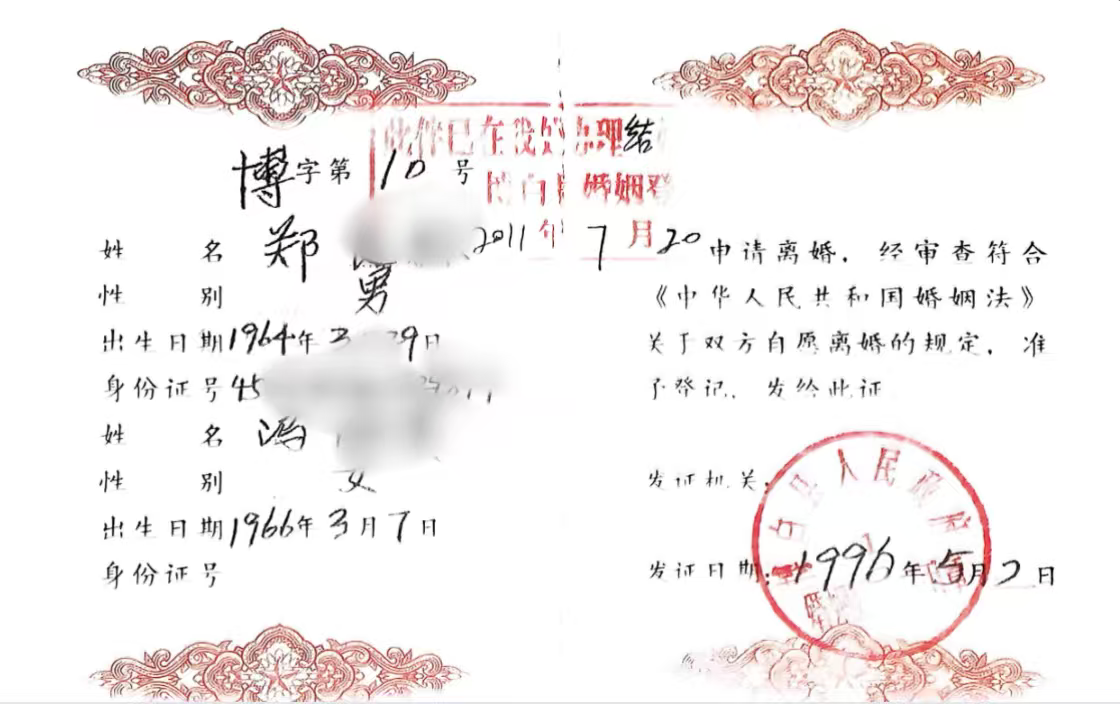 此件已在我处办理结
博白县婚姻登
2011年7月20
博字第10号
姓名 郑
性别 男
出生日期1964年3 29日
身份证号45
姓名 冯
性别 女
出生日期1966年3月7日
身份证号
申请离婚，经审查符合
《中华人民共和国婚姻法》
关于双方自愿离婚的规定，准
予登记，发给此证
发证机关：
白县人民政府
发证日期：1996年5月2日